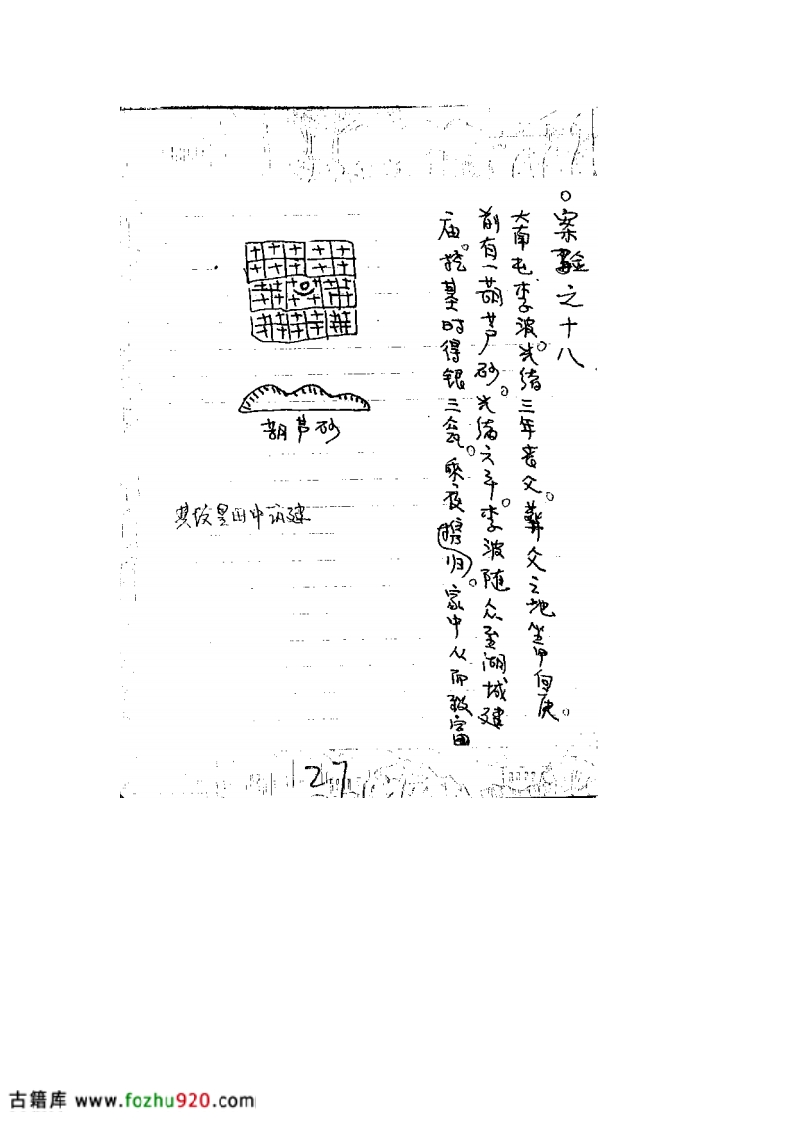 ○案验之十八
大南屯李波。光绪三年丧父。葬父之地坐甲向庚。
前有一葫芦砂。光绪六年。李波随众至湖城建
庙。挖基时得银三瓮。乘夜携归。家中从而致富
葫芦砂
其坟是田中所建
127
古籍库 www.fozhu920.com